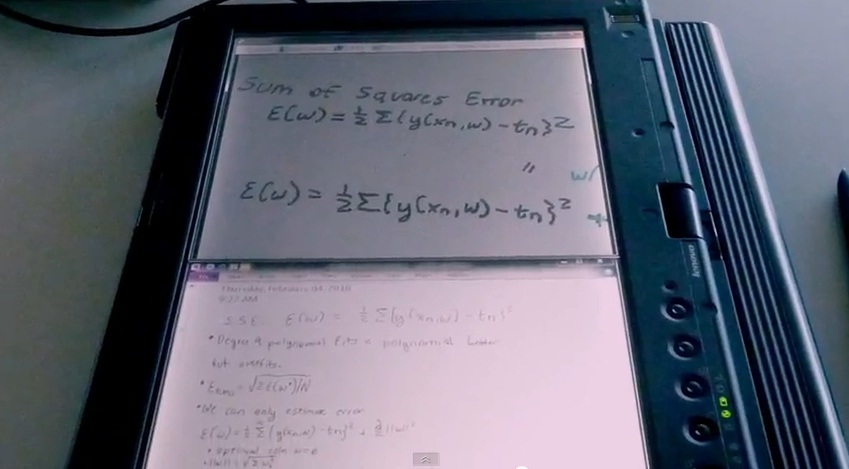 Sum of Squares Error
E(w) = ½ Σ{y(xn,w) - tn}²
" w/
E(w) = ½ Σ{y(xn,w) - tn}² +
lenovo
Thursday, February 04, 2010
9:27 AM
SSE E(w) = ½ Σ{y(xn,w) - tn}²
• Degree 9 polynomial fits polynomial
but overfits.
• ERMS = √2E(w*)/N
• We can only estimate error
E(w) = ½ Σ{y(xn,w) - tn}² + λ/2 ||w||²
• optimal